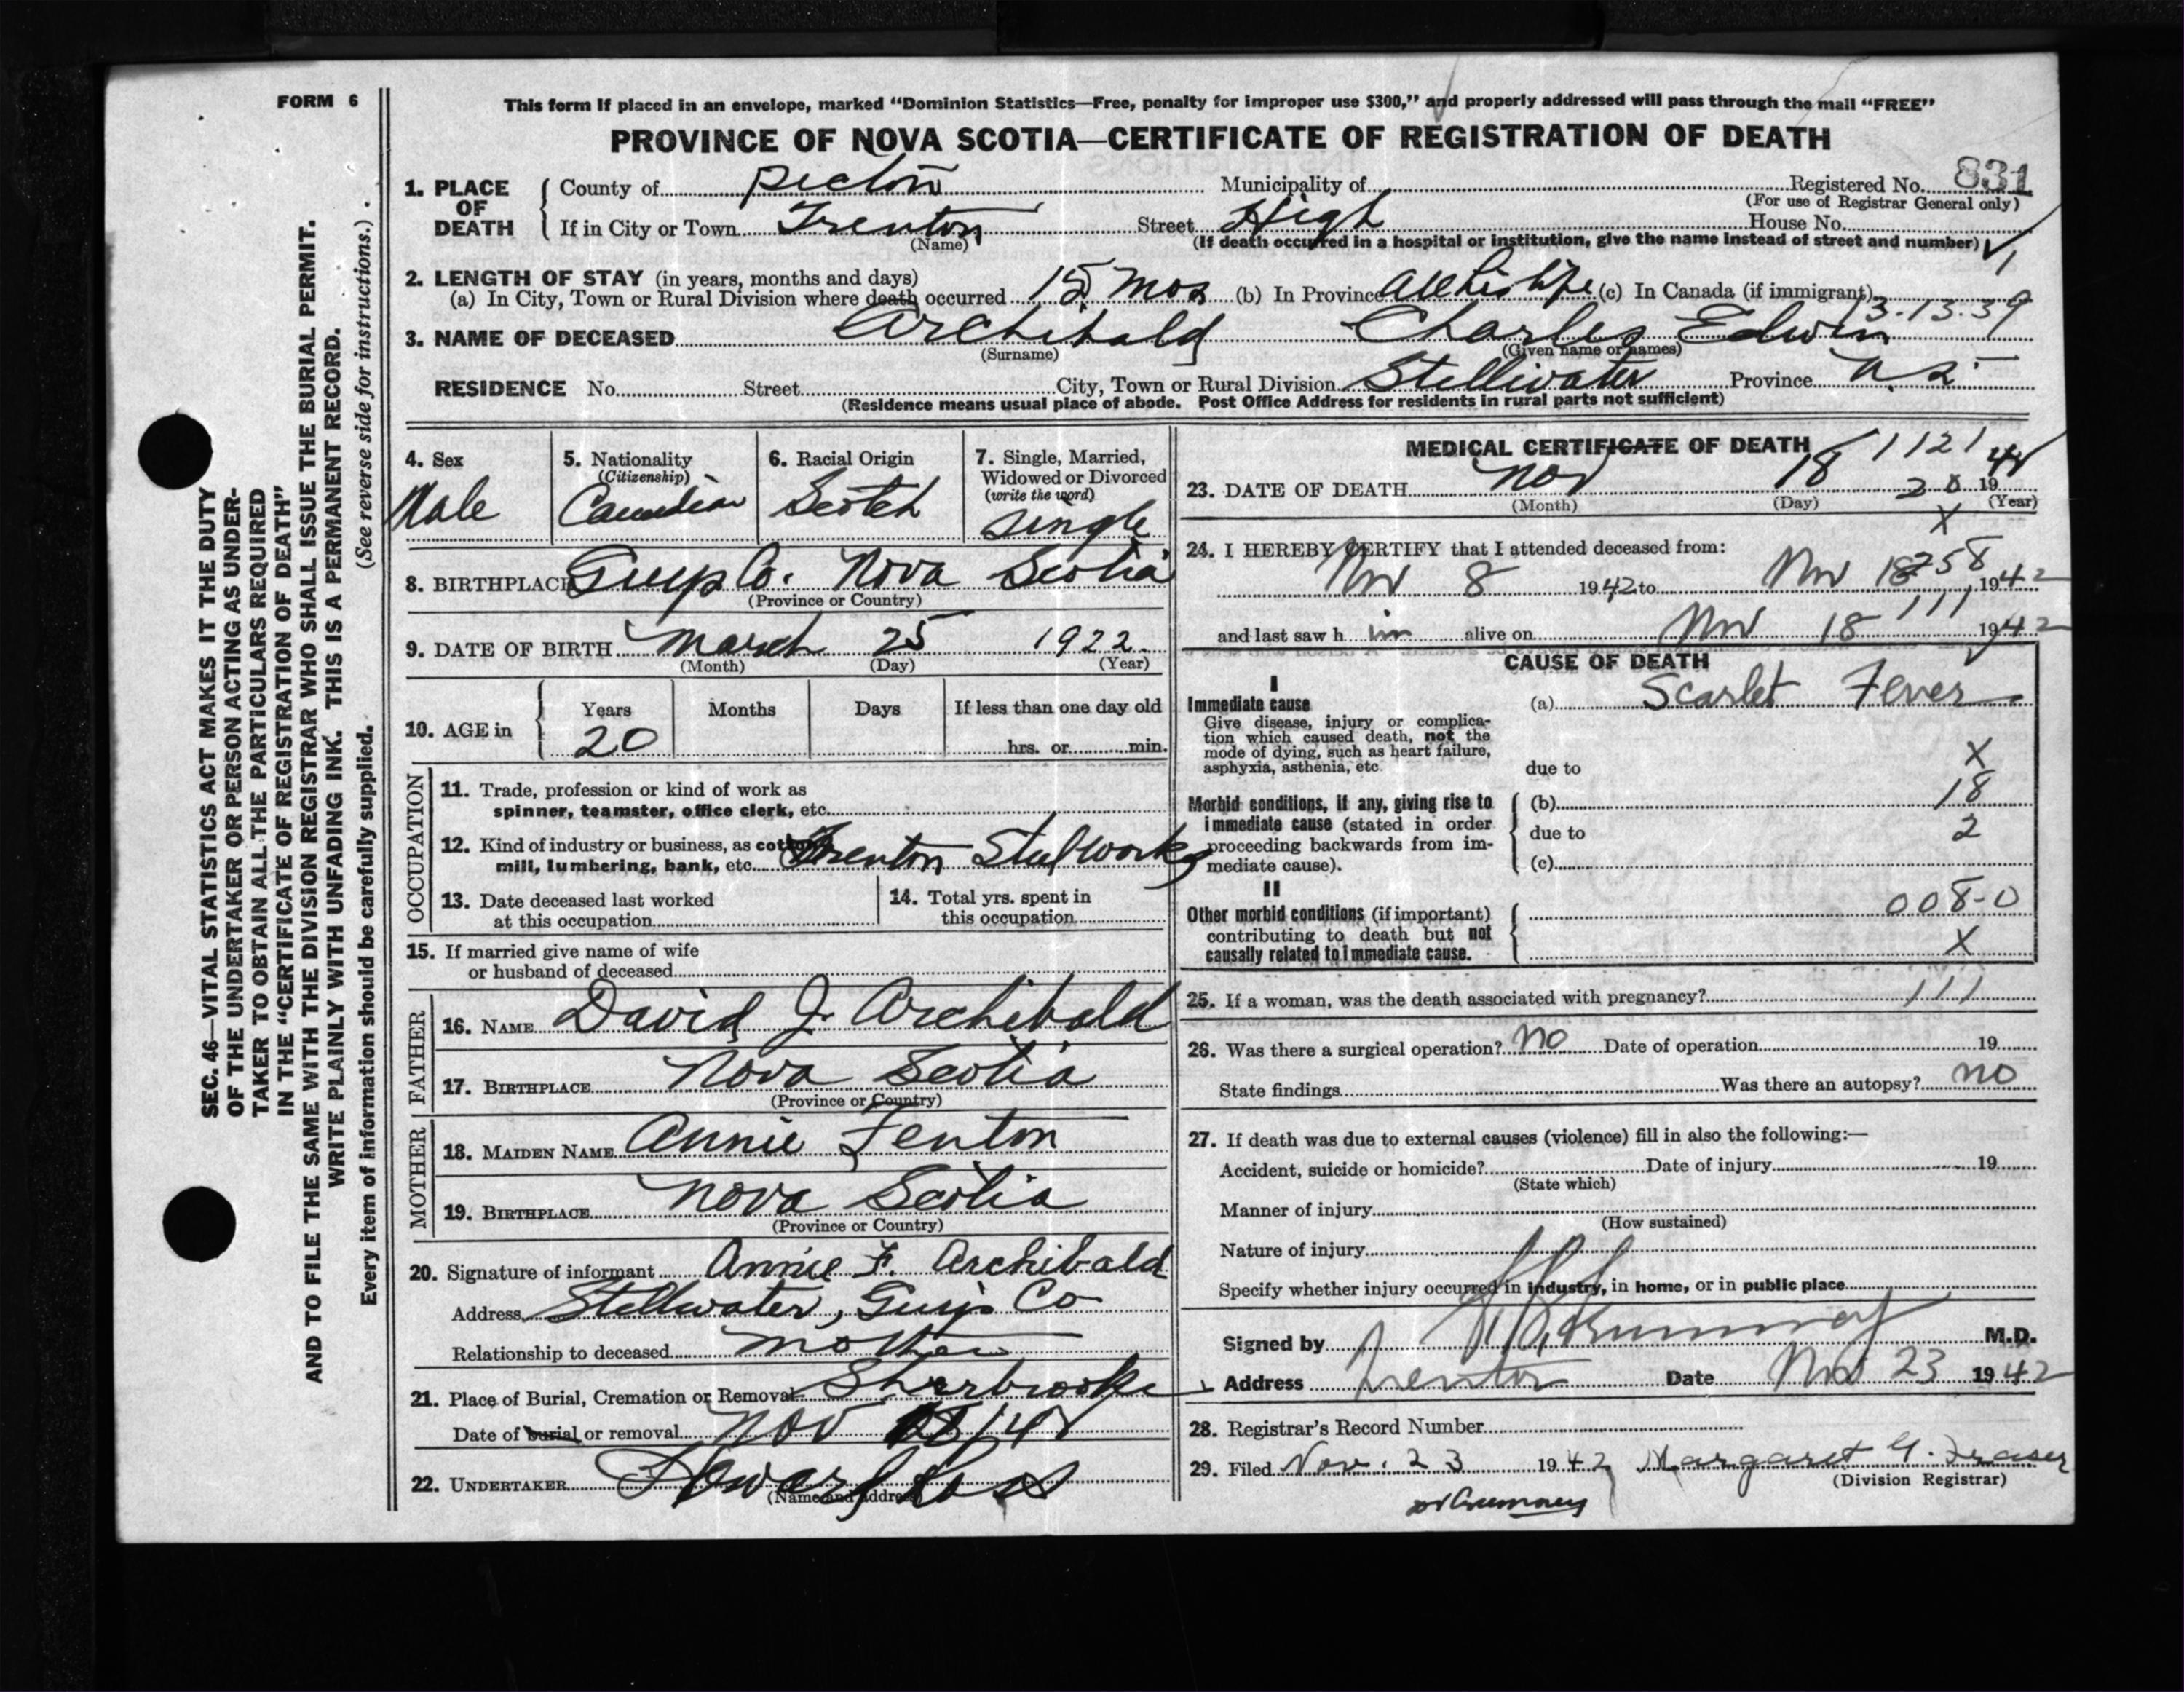 FORM 6
This form if placed in an envelope, marked “Dominion Statistics—Free, penalty for improper use $300,” and properly addressed will pass through the mail “FREE”
PROVINCE OF NOVA SCOTIA—CERTIFICATE OF REGISTRATION OF DEATH
1. PLACE OF DEATH County of Pictou Municipality of Registered No. 831
(For use of Registrar General only)
If in City or Town Trenton Street High House No.
(Name) (If death occurred in a hospital or institution, give the name instead of street and number)
2. LENGTH OF STAY (in years, months and days)
(a) In City, Town or Rural Division where death occurred 15 mos (b) In Province All his life (c) In Canada (if immigrant)
13-13-39
3. NAME OF DECEASED Archibald Charles Edwin
(Surname) (Given name or names)
RESIDENCE No. Street City, Town or Rural Division Stillwater Province N.S.
(Residence means usual place of abode. Post Office Address for residents in rural parts not sufficient)
4. Sex
Male
5. Nationality
(Citizenship)
Canadian
6. Racial Origin
Scotch
7. Single, Married,
Widowed or Divorced
(write the word)
Single
8. BIRTHPLACE Guys Co. Nova Scotia
(Province or Country)
9. DATE OF BIRTH March 25 1922
(Month) (Day) (Year)
10. AGE in Years Months Days If less than one day old
20 hrs. or min.
OCCUPATION
11. Trade, profession or kind of work as
spinner, teamster, office clerk, etc.
12. Kind of industry or business, as cotton
mill, lumbering, bank, etc. Trenton Steelworks
13. Date deceased last worked
at this occupation
14. Total yrs. spent in
this occupation
15. If married give name of wife
or husband of deceased
FATHER
16. NAME David J. Archibald
17. BIRTHPLACE Nova Scotia
(Province or Country)
MOTHER
18. MAIDEN NAME Annie Fenton
19. BIRTHPLACE Nova Scotia
(Province or Country)
20. Signature of informant Annie F. Archibald
Address Stillwater, Guys Co
Relationship to deceased Mother
21. Place of Burial, Cremation or Removal Sherbrooke
Date of burial or removal Nov
22. UNDERTAKER
(Name and address)
MEDICAL CERTIFICATE OF DEATH
1121
23. DATE OF DEATH Nov 18 1942
(Month) (Day) (Year)
X
24. I HEREBY CERTIFY that I attended deceased from:
Nov 8 1942 to Nov 18 1942
111
and last saw him alive on Nov 18 1942
CAUSE OF DEATH
I
Immediate cause
Give disease, injury or complica-
tion which caused death, not the
mode of dying, such as heart failure,
asphyxia, asthenia, etc.
(a) Scarlet Fever
X
due to
Morbid conditions, if any, giving rise to
immediate cause (stated in order
proceeding backwards from im-
mediate cause).
(b) 18
due to 2
(c)
II
Other morbid conditions (if important)
contributing to death but not
causally related to immediate cause.
008-0
X
25. If a woman, was the death associated with pregnancy? 111
26. Was there a surgical operation? No Date of operation 19
State findings Was there an autopsy? no
27. If death was due to external causes (violence) fill in also the following:—
Accident, suicide or homicide? Date of injury 19
(State which)
Manner of injury
(How sustained)
Nature of injury
Specify whether injury occurred in industry, in home, or in public place
Signed by M.D.
Address Trenton Date Nov 23 1942
28. Registrar's Record Number
29. Filed Nov. 23 1942 Margaret G. Fraser
(Division Registrar)
SEC. 46—VITAL STATISTICS ACT MAKES IT THE DUTY
OF THE UNDERTAKER OR PERSON ACTING AS UNDER-
TAKER TO OBTAIN ALL THE PARTICULARS REQUIRED
IN THE “CERTIFICATE OF REGISTRATION OF DEATH”
AND TO FILE THE SAME WITH THE DIVISION REGISTRAR WHO SHALL ISSUE THE BURIAL PERMIT.
WRITE PLAINLY WITH UNFADING INK. THIS IS A PERMANENT RECORD.
(See reverse side for instructions.)
Every item of information should be carefully supplied.